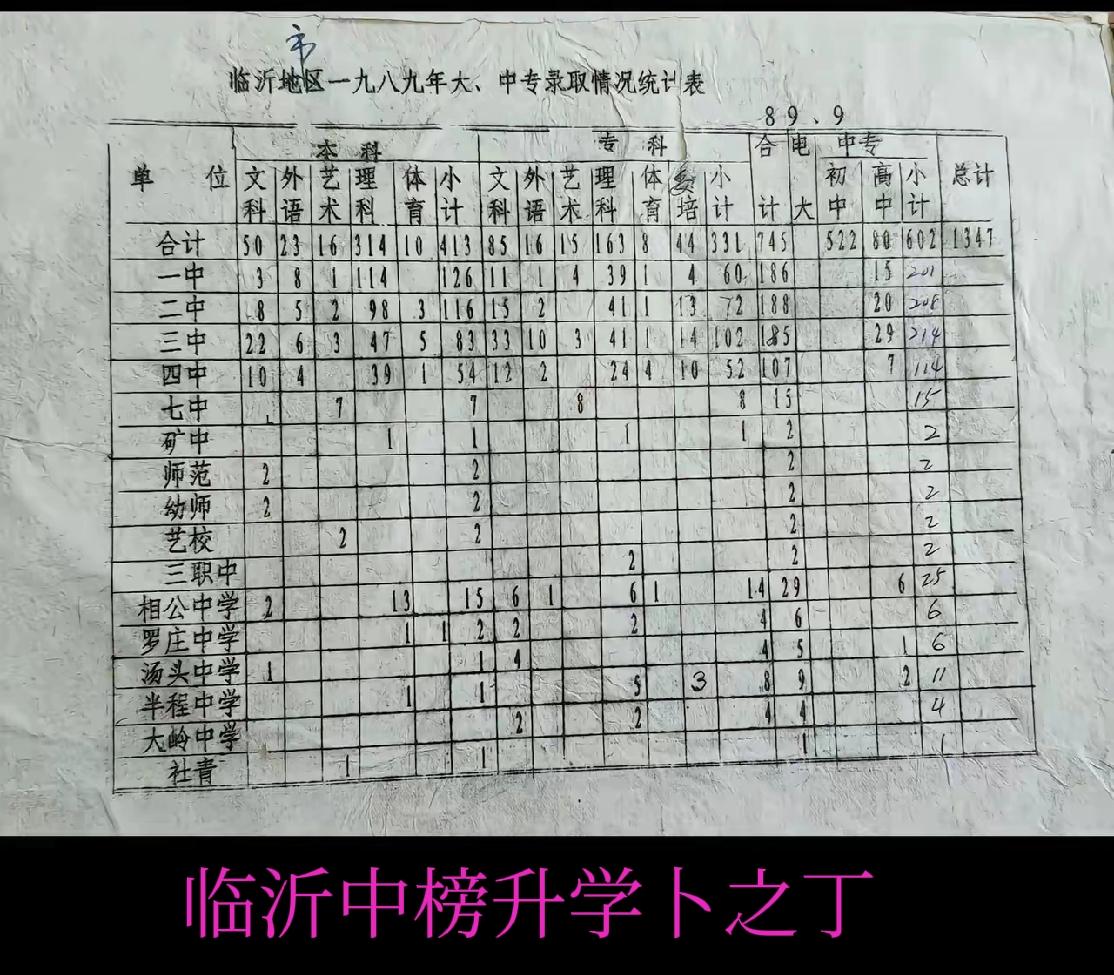 市
临沂地区一九八九年大、中专录取情况统计表
89.9
单位 本科 专科 合计 电大 中专 总计
文科 外语 艺术 理科 体育 小计 文科 外语 艺术 理科 体育 委培 小计 初中 高中 小计
合计 50 23 16 314 10 413 85 16 15 163 8 44 331 745 522 80 602 1347
一中 3 8 1 114 126 11 1 4 39 1 4 60 186 15 201
二中 8 5 2 98 3 116 15 2 41 1 13 72 188 20 208
三中 22 6 3 47 5 83 33 10 3 41 1 14 102 185 29 214
四中 10 4 39 1 54 12 2 24 4 10 52 107 7 114
七中 7 7 8 8 15 15
矿中 1 1 1 1 2 2
师范 2 2 2 2
幼师 2 2 2 2
艺校 2 2 2 2
三职中 2 2 2
相公中学 2 13 15 6 1 6 1 14 29 6 25
罗庄中学 1 1 2 2 2 4 6 6
汤头中学 1 1 4 4 5 1 6
半程中学 1 1 5 3 8 9 2 11
大岭中学 2 2 4 4 4
社青 1 1 1 1
临沂中榜升学卜之丁